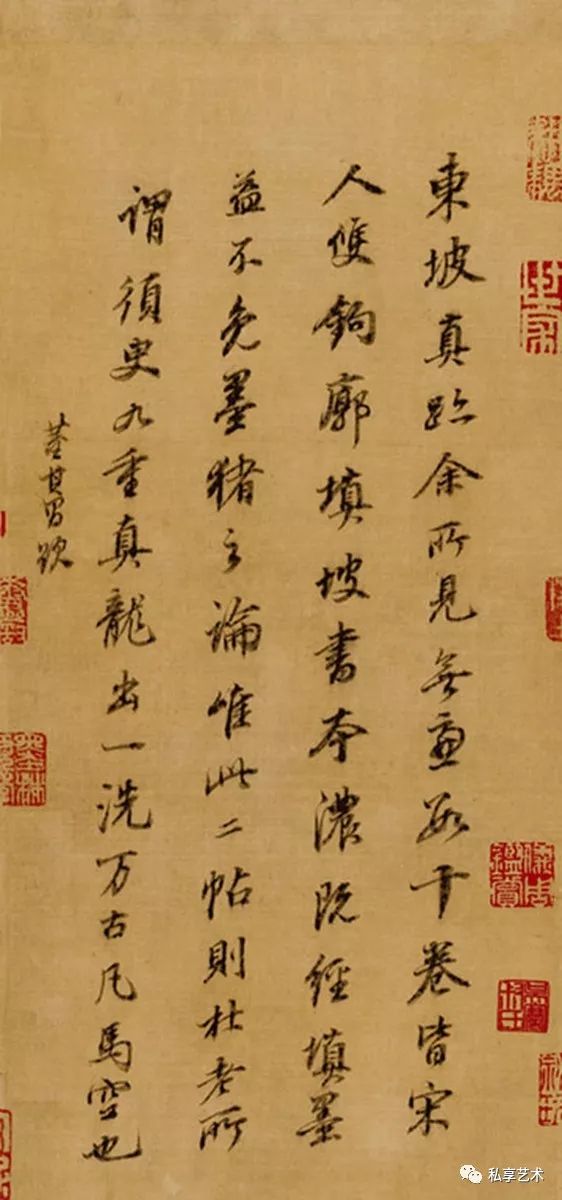 東坡真跡余所見無慮數十卷皆宋
人雙鉤廓填坡書本濃既經填墨
益不免墨豬之論唯此二帖則杜老所
謂須臾九重真龍出一洗万古凡馬空也
董其昌跋
私享艺术